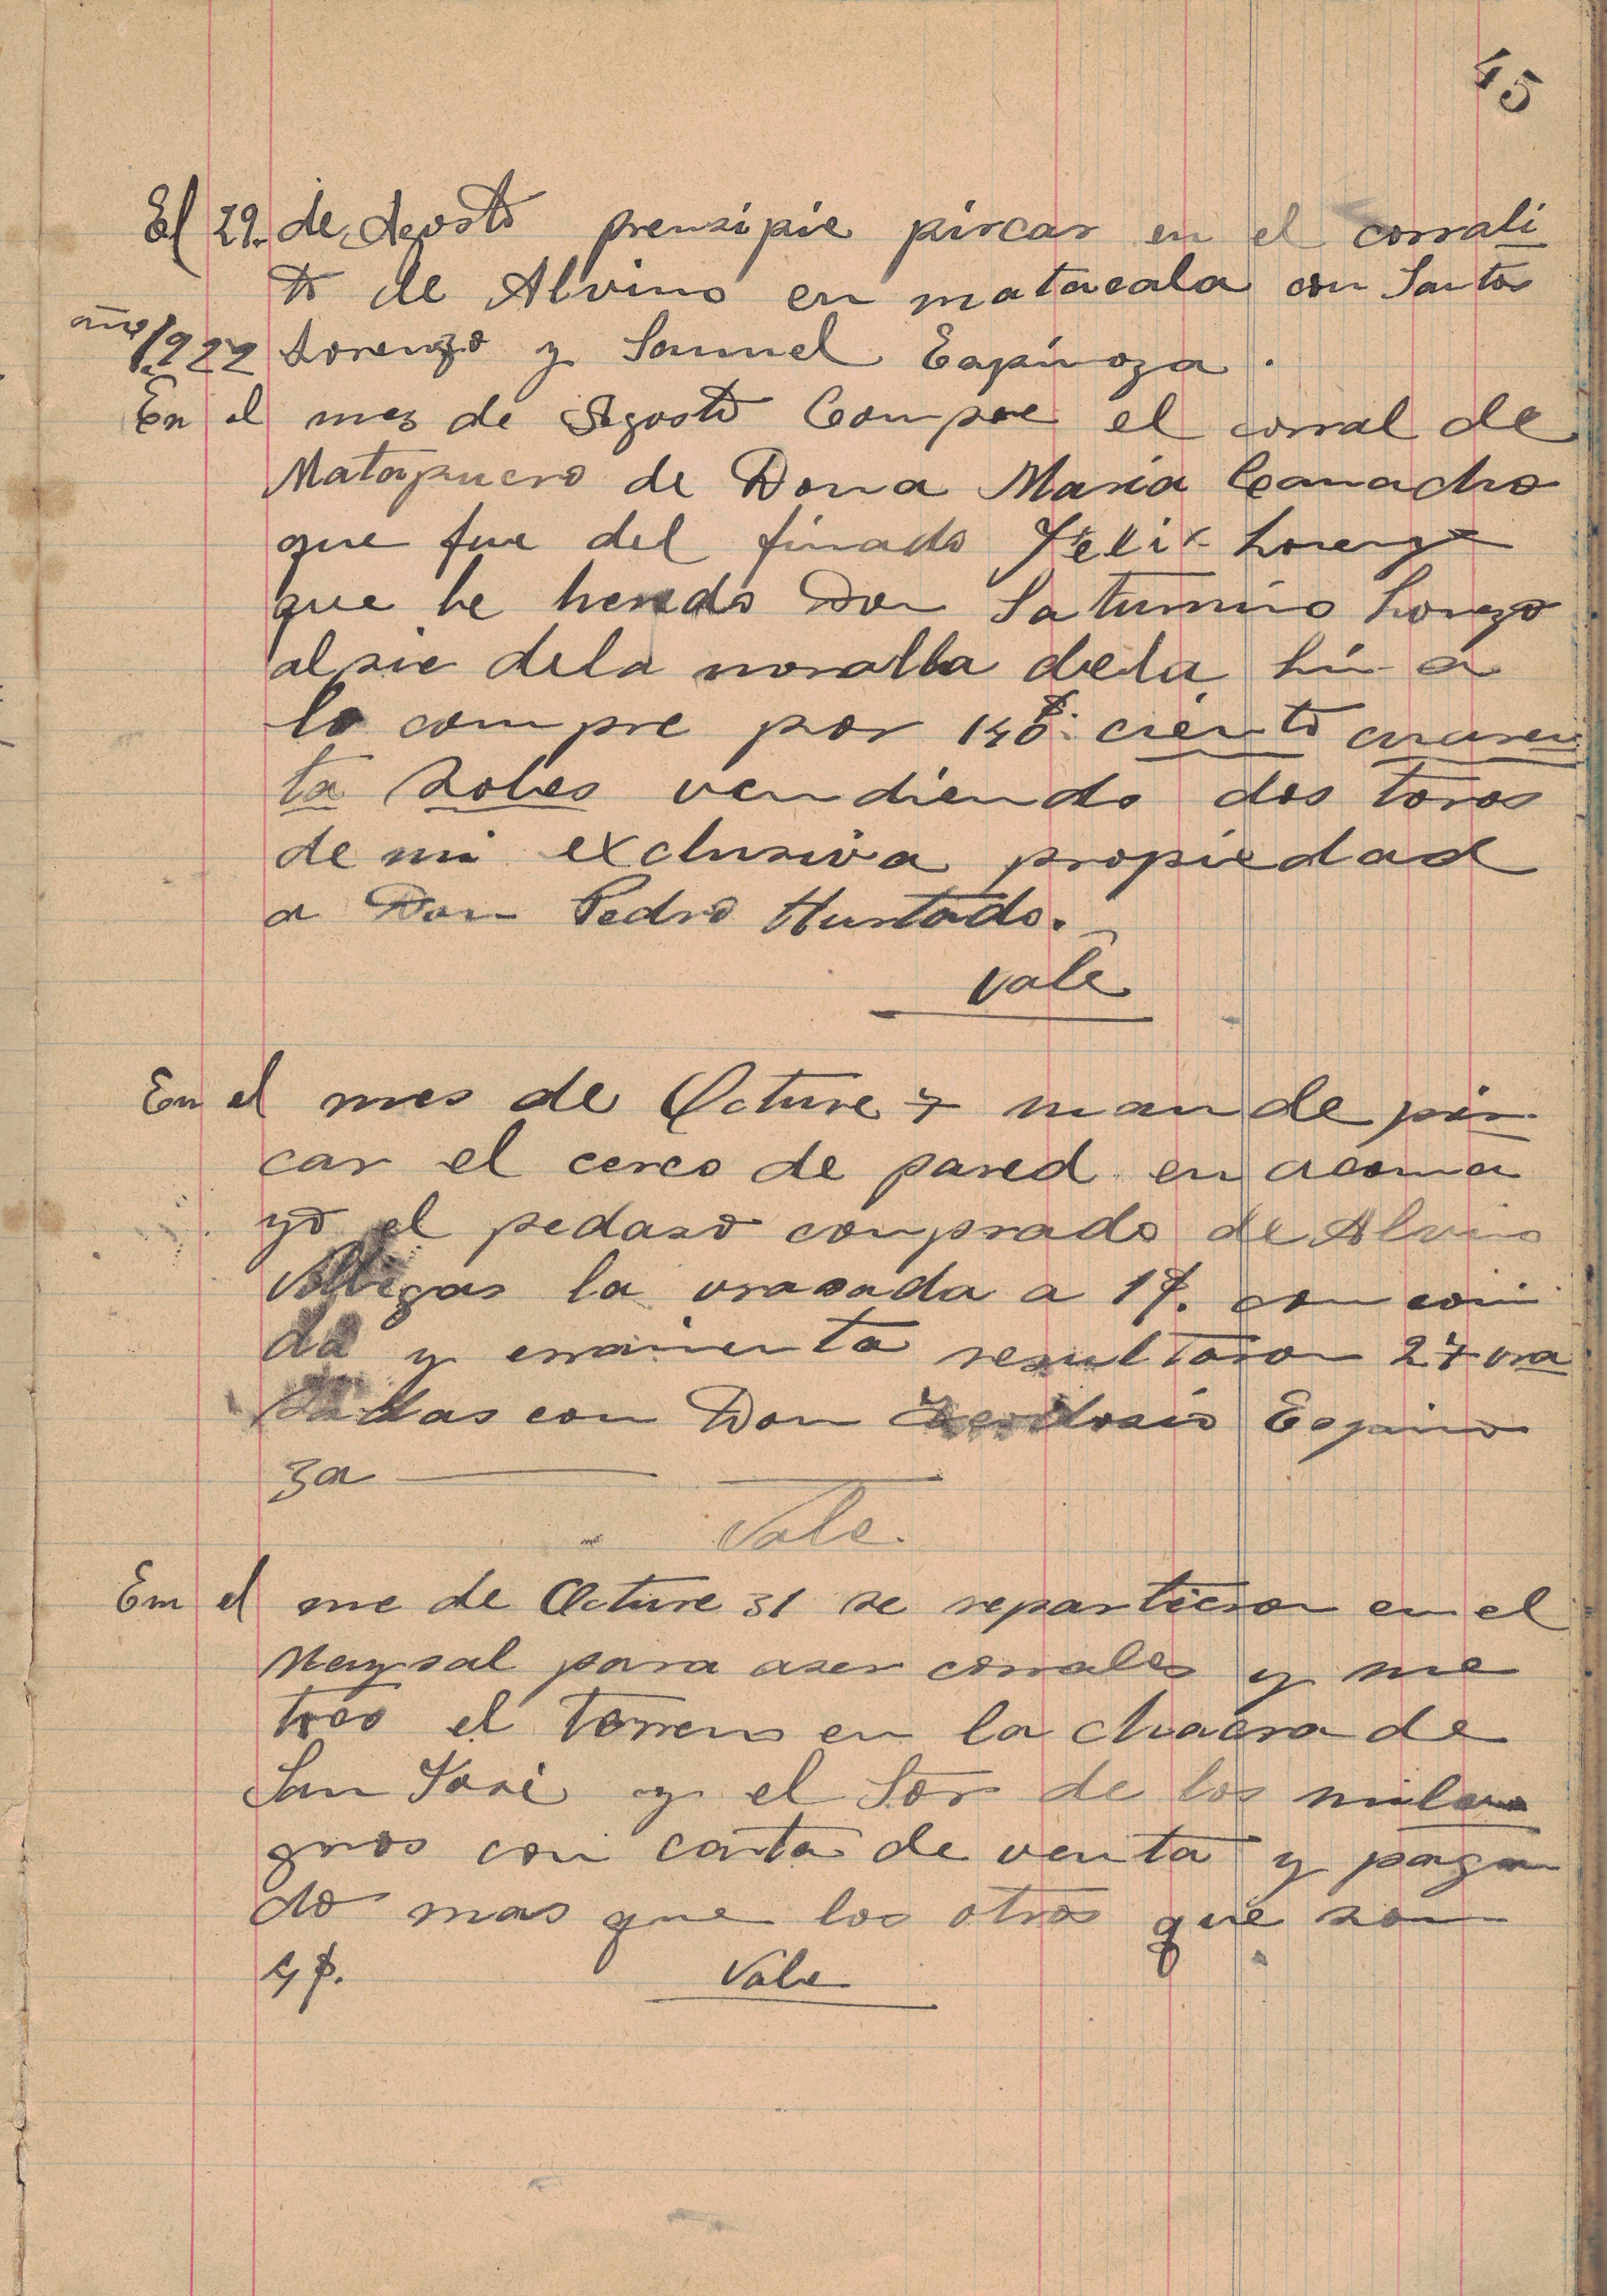 45
El 29. de Agosto prensipie pircar en el corrali
to de Alvino en matacala con Santos
año 1922 Lorenzo y Samuel Espinoza.
En el mez de Agosto Compre el corral de
Matapucro de Dona Maria Camacho
que fue del finado Felix Lorenzo
que le hendo Don Saturnino Lorenzo
al pie dela moralla dela
lo compre por 140$. ciento cuaren
ta soles vendiendo dos toros
de mi exclusiva propiedad
a Don Pedro Hurtado.
Vale
En el mes de Octure 7 mande pir
car el cerco de pared en acoma
yo el pedaso comprado de Alvino
Villegas la vrasada a 1$. con comi
da y erramienta resultaron 27 vra
sadas con Don Teodosio Espino
za
Vale.
En el me de Octure 31 se repartieron en el
Maysal para aser corrales y me
toco el torreno en la chacra de
San José y el Sor de los mila
gros con carta de venta y pagan
do mas que los otros que son
4$. Vale